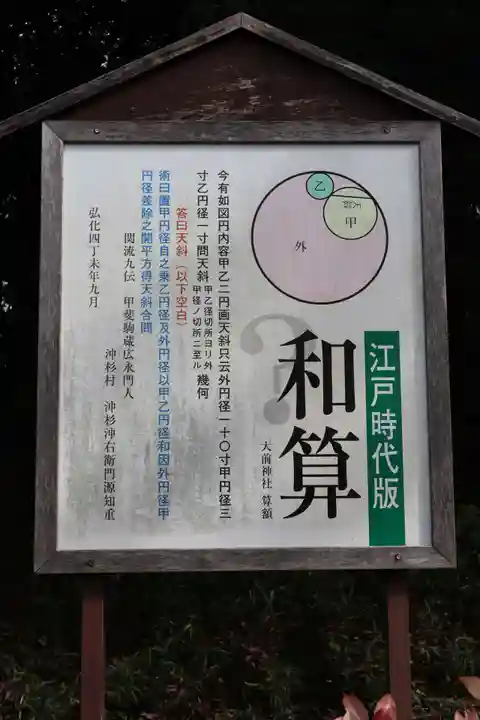 江戸時代版
和算
大前神社 算額
乙
天斜
甲
外
今有如図円内容甲乙二円画天斜只云外円径一十〇寸甲円径三
寸乙円径一寸問天斜 甲乙径切所ヨリ外甲径ノ切所ニ至ル 幾何
答曰天斜(以下空白)
術曰置甲円径自之乗乙円径及外円径以甲乙円径和因外円径甲
円径差除之開平方得天斜合問
関流九伝 甲斐駒蔵広永門人
沖杉村 沖杉沖右衛門源知重
弘化四丁未年九月